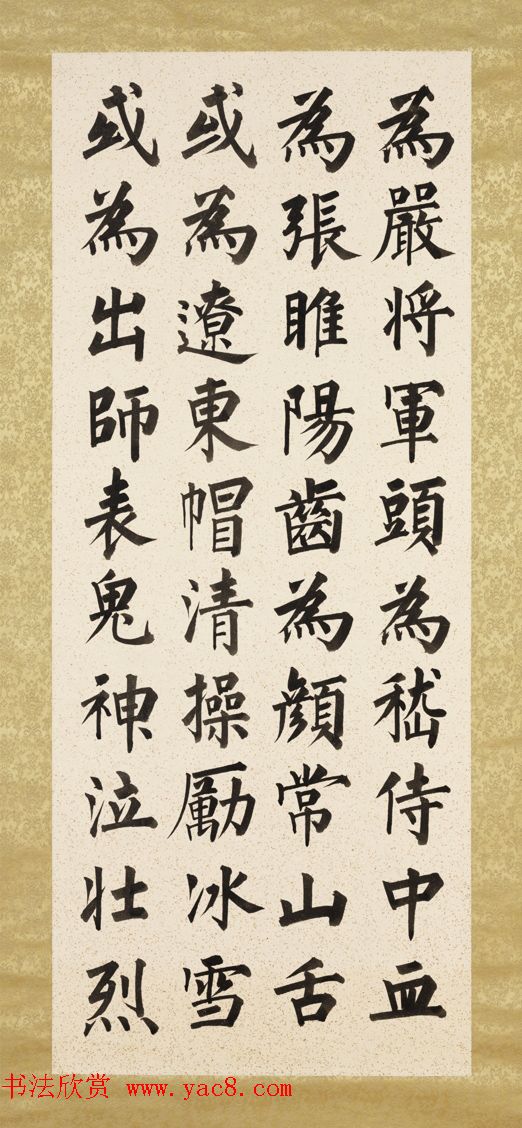 為嚴将軍頭為嵇侍中血
為張睢陽齒為顔常山舌
或為遼東帽清操厲冰雪
或為出師表鬼神泣壯烈
书法欣赏 www.yac8.com